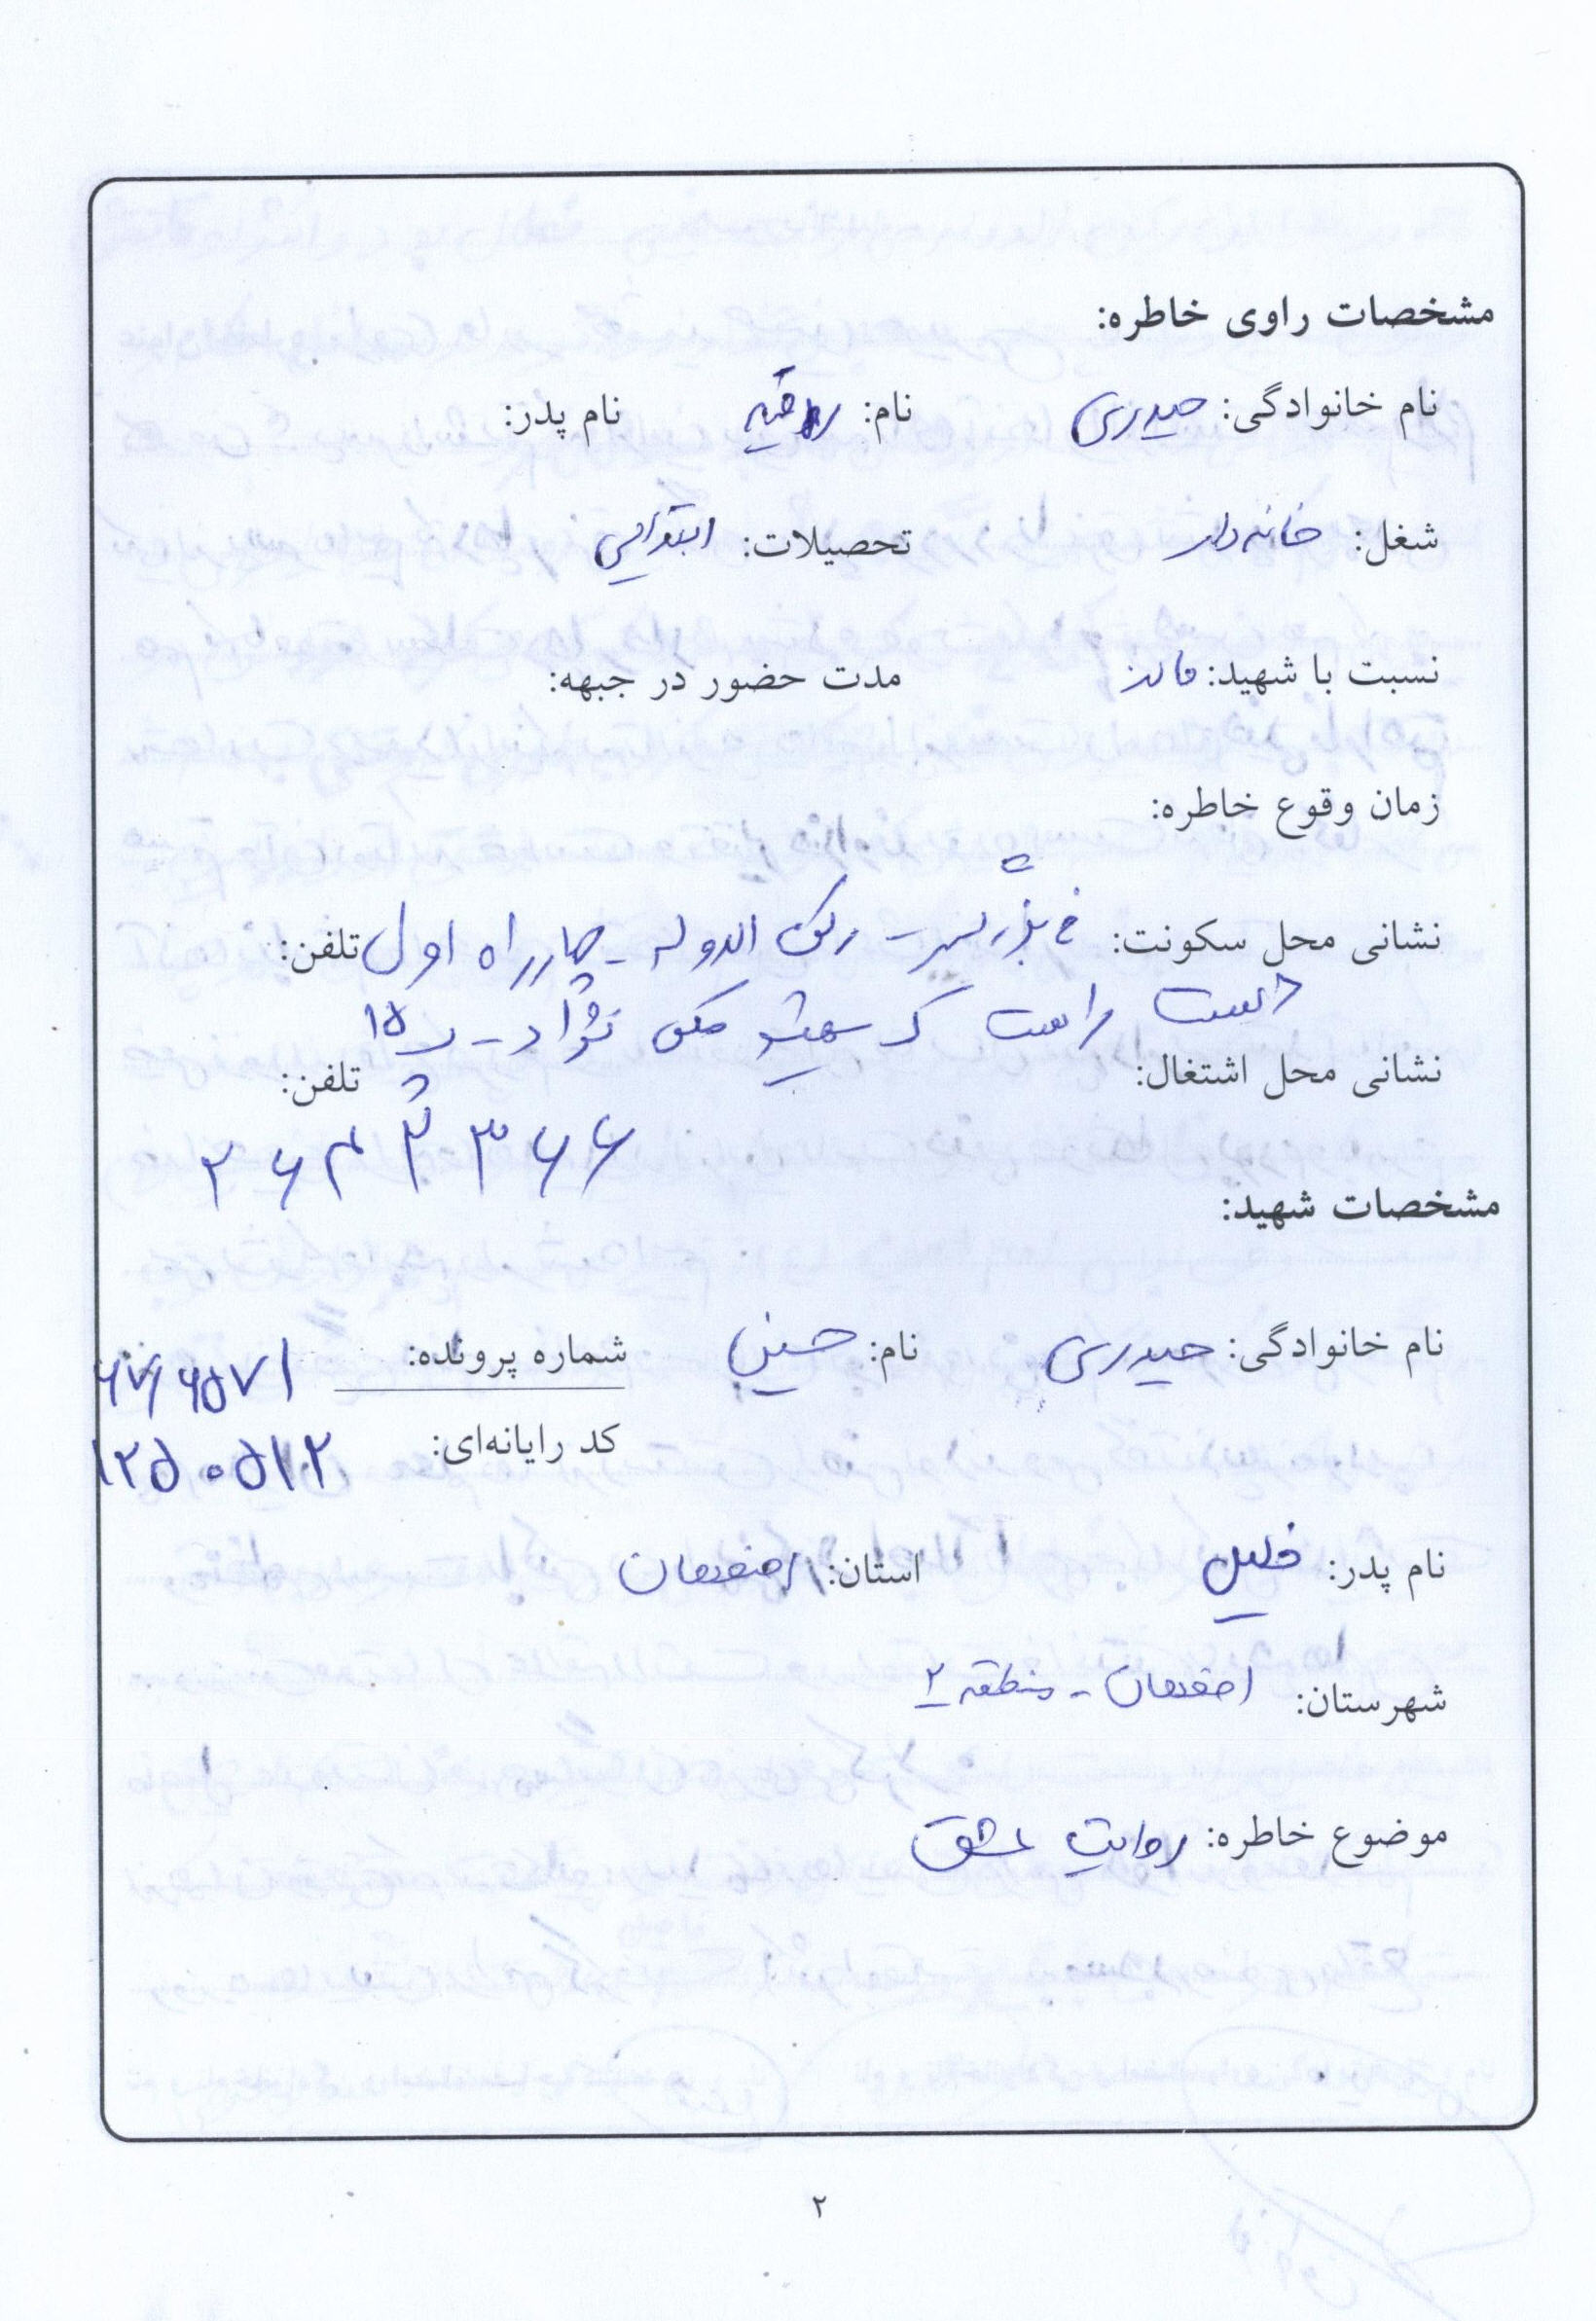 مشخصات راوی خاطره:
نام خانوادگی: حیدری نام: رقیه نام پدر:
شغل: خانه دار تحصیلات: ابتدایی
نسبت با شهید: مادر مدت حضور در جبهه:
زمان وقوع خاطره:
نشانی محل سکونت: خ - رکن الدوله - چهارراه اول تلفن:
دست راست ک شهید نژاد - پ ۱۵
نشانی محل اشتغال: تلفن:
۲۶۴۲۳۶۶
مشخصات شهید:
نام خانوادگی: حیدری نام: حسین شماره پرونده:
کد رایانه‌ای: ۱۲۵۰۵۱۲
نام پدر: خلیل استان: اصفهان
شهرستان: اصفهان - منطقه ۲
موضوع خاطره: روایت عشق
۲